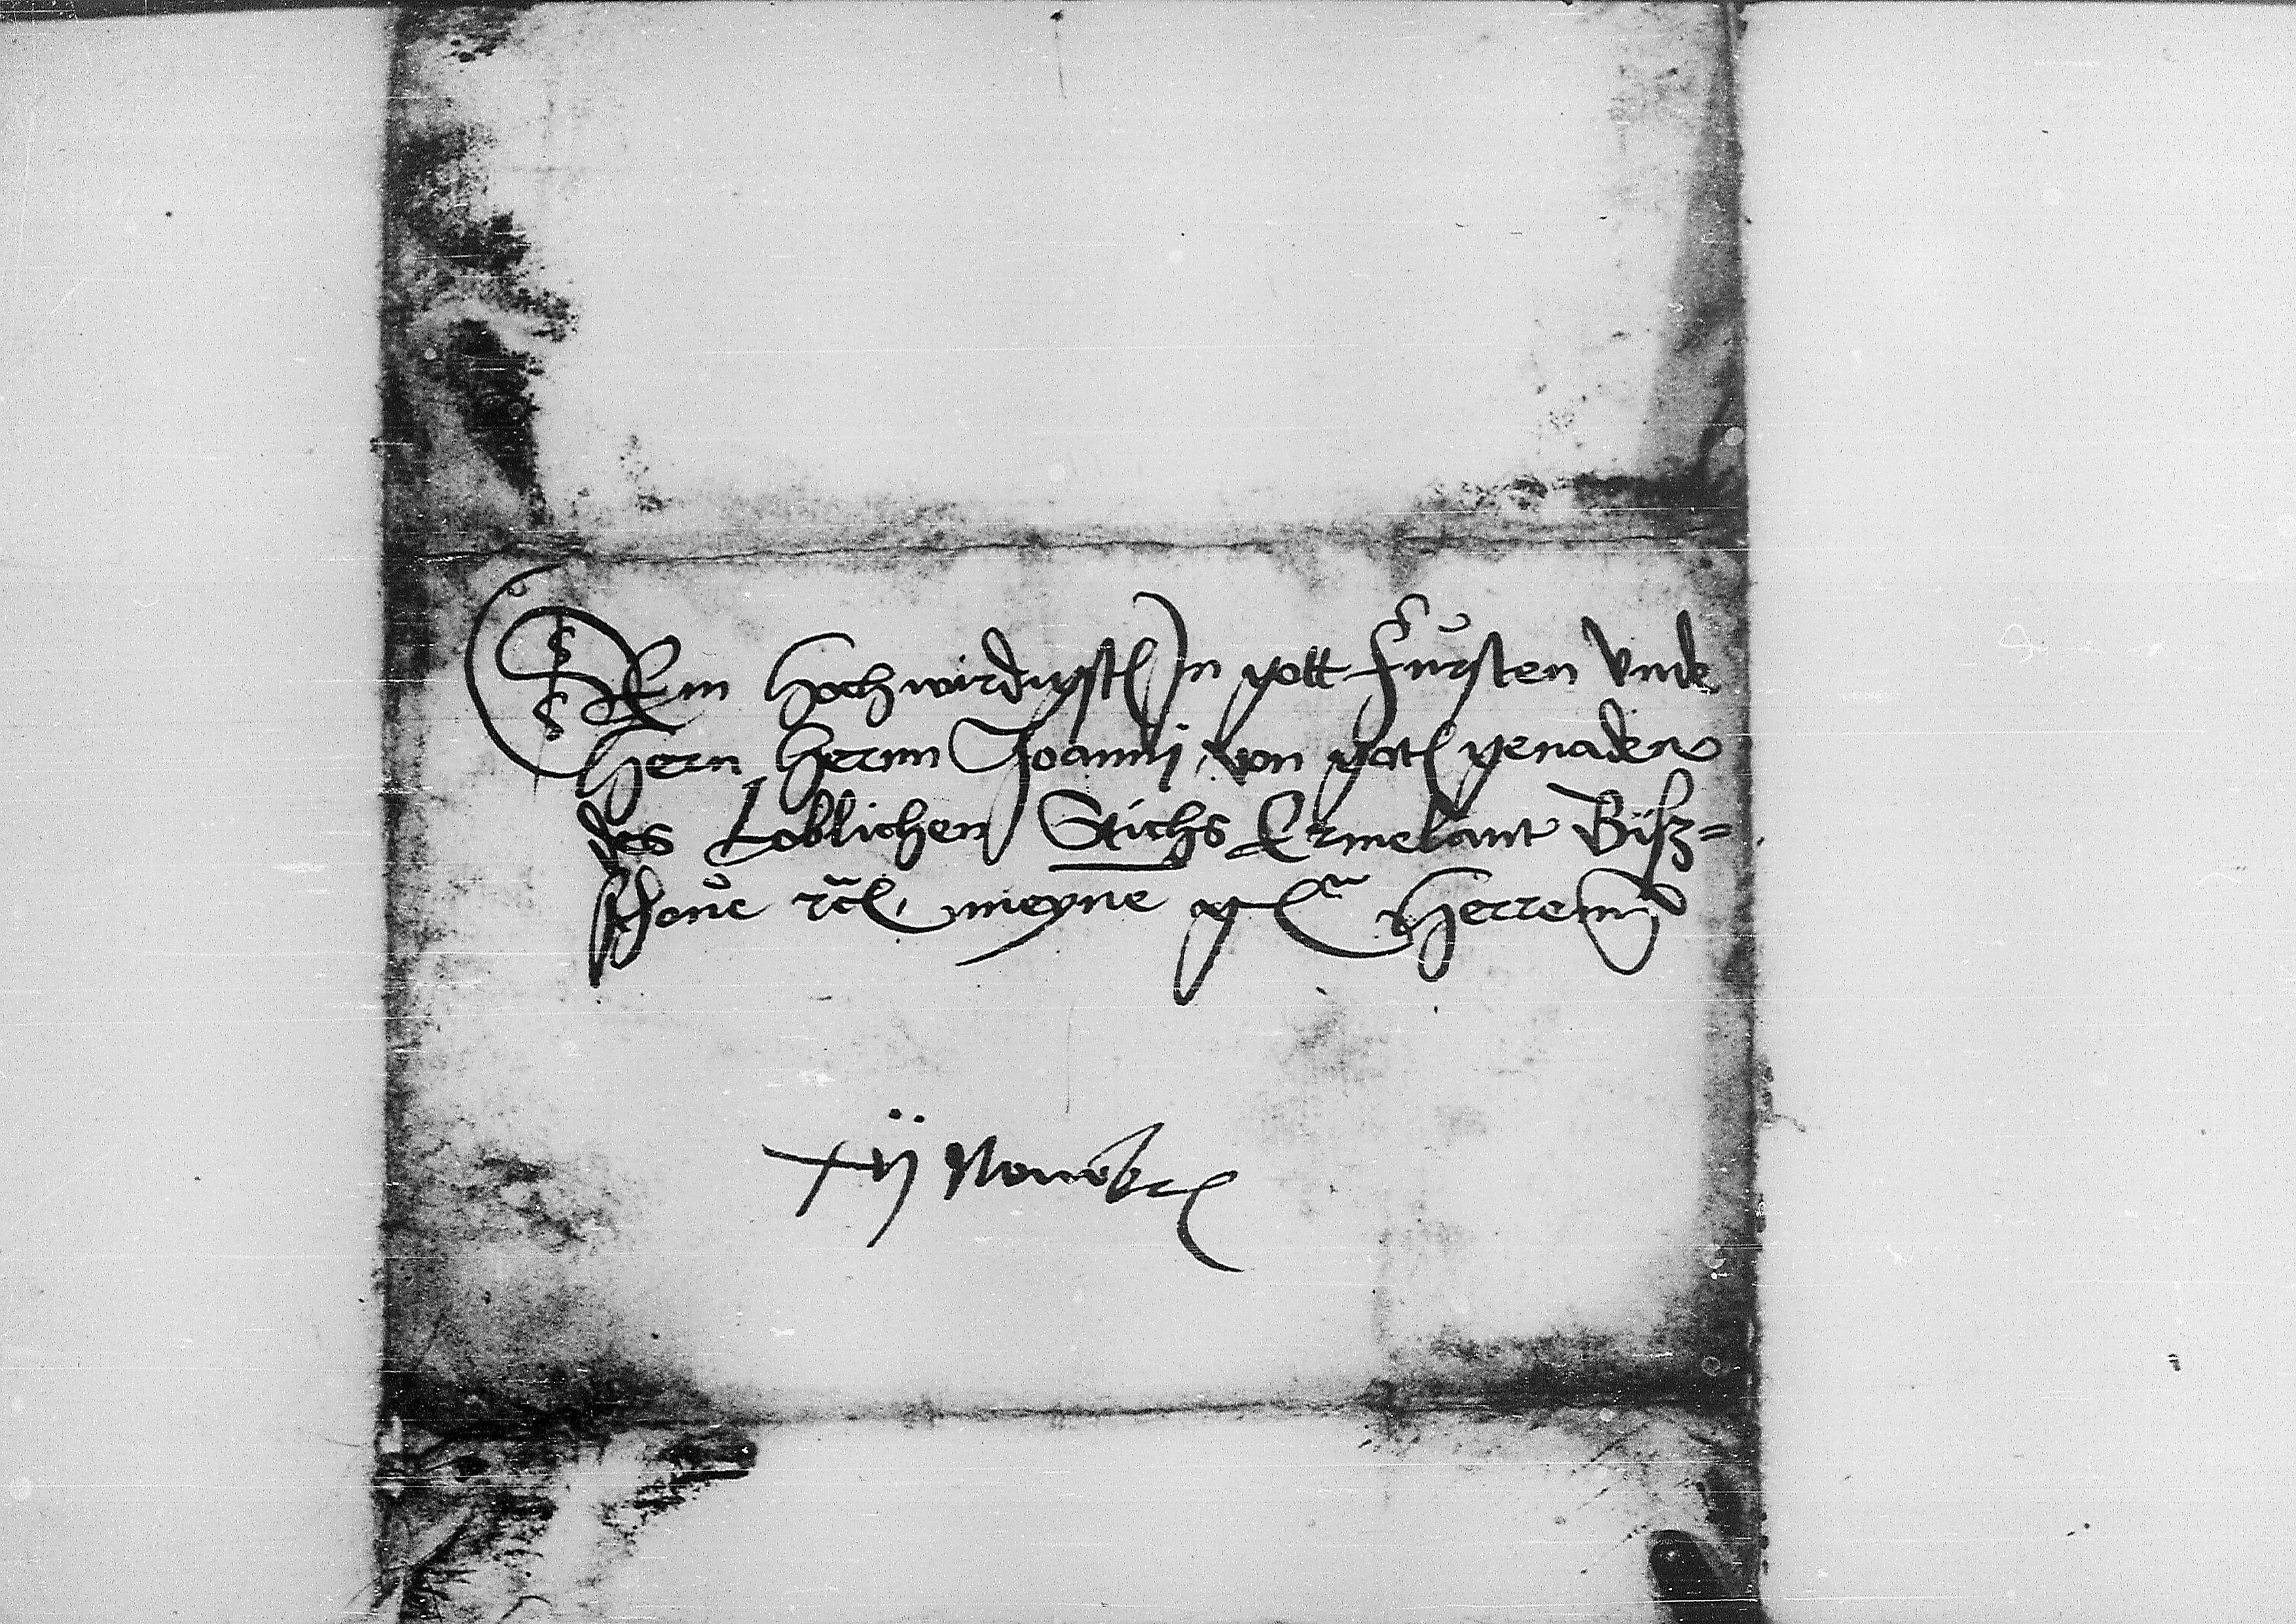 Dem Hochwirdigsten In gott Fursten Vnde
Hern Hernn Joanni von gots genaden
des Loblichen Stichs Ermelant Bisz=
schoue etc. meyne g Herrenn
xij Nouembris